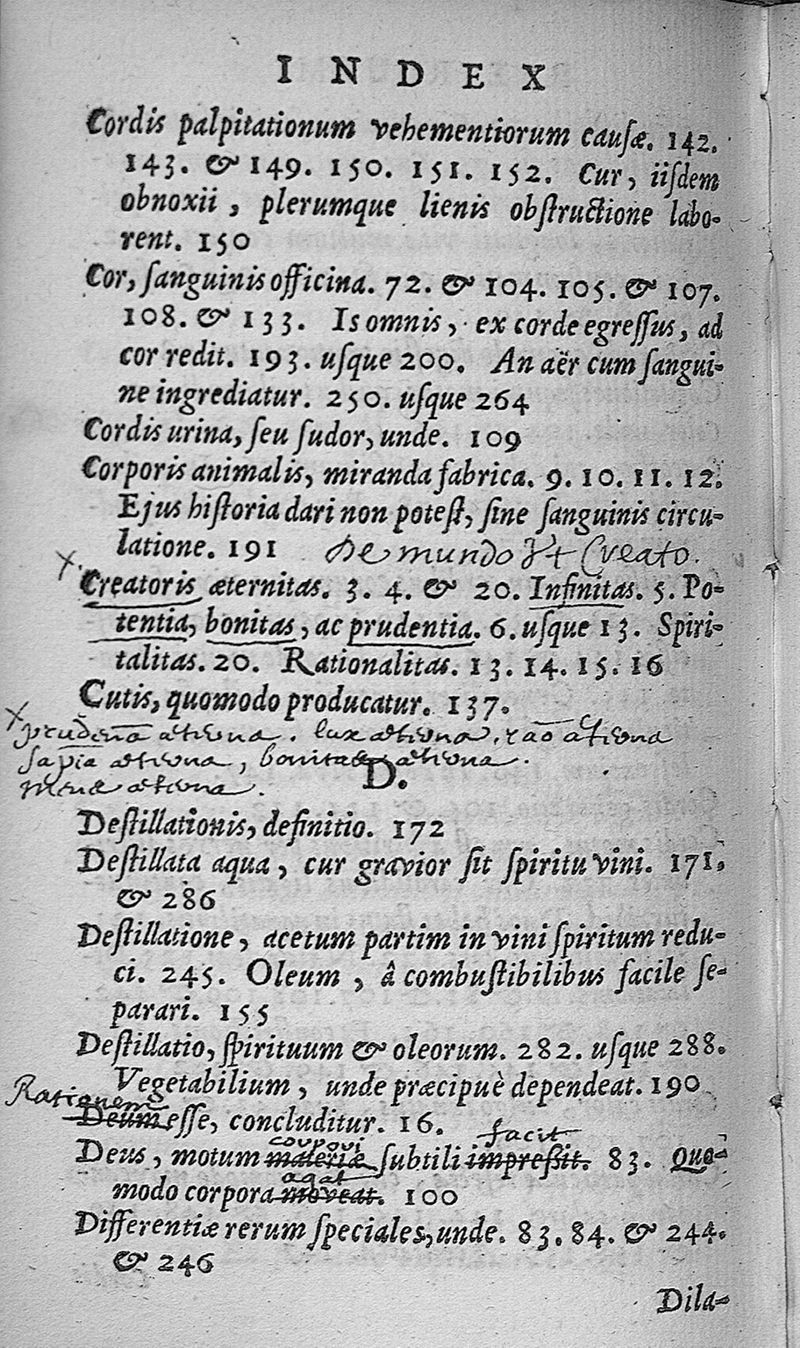 INDEX
Cordis palpitationum vehementiorum causæ. 142.
143. & 149. 150. 151. 152. Cur, iiſdem
obnoxii, plerumque lienis obſtructione labo-
rent. 150
Cor, ſanguinis officina. 72. & 104. 105. & 107.
108. & 133. Is omnis, ex corde egreſſus, ad
cor redit. 193. uſque 200. An aër cum ſangui-
ne ingrediatur. 250. uſque 264
Cordis urina, ſeu ſudor, unde. 109
Corporis animalis, miranda fabrica. 9. 10. 11. 12.
Ejus hiſtoria dari non poteſt, ſine ſanguinis circu-
latione. 191 De mundo Creato.
x Creatoris æternitas. 3. 4. & 20. Infinitas. 5. Po-
tentia, bonitas, ac prudentia. 6. uſque 13. Spiri-
talitas. 20. Rationalitas. 13. 14. 15. 16
Cutis, quomodo producatur. 137.
x
D.
Deſtillationis, definitio. 172
Deſtillata aqua, cur gravior ſit ſpiritu vini. 171.
& 286
Deſtillatione, acetum partim in vini ſpiritum redu-
ci. 245. Oleum, â combuſtibilibus facile ſe-
parari. 155
Deſtillatio, ſpirituum & oleorum. 282. uſque 288.
Vegetabilium, unde præcipuè dependeat. 190
Rationem
Deum eſſe, concluditur. 16.
facit
Deus, motum materiæ ſubtili impreſſit. 83. Quo-
agat
modo corpora moveat. 100
Differentiæ rerum ſpeciales, unde. 83. 84. & 244.
& 246
Dila-